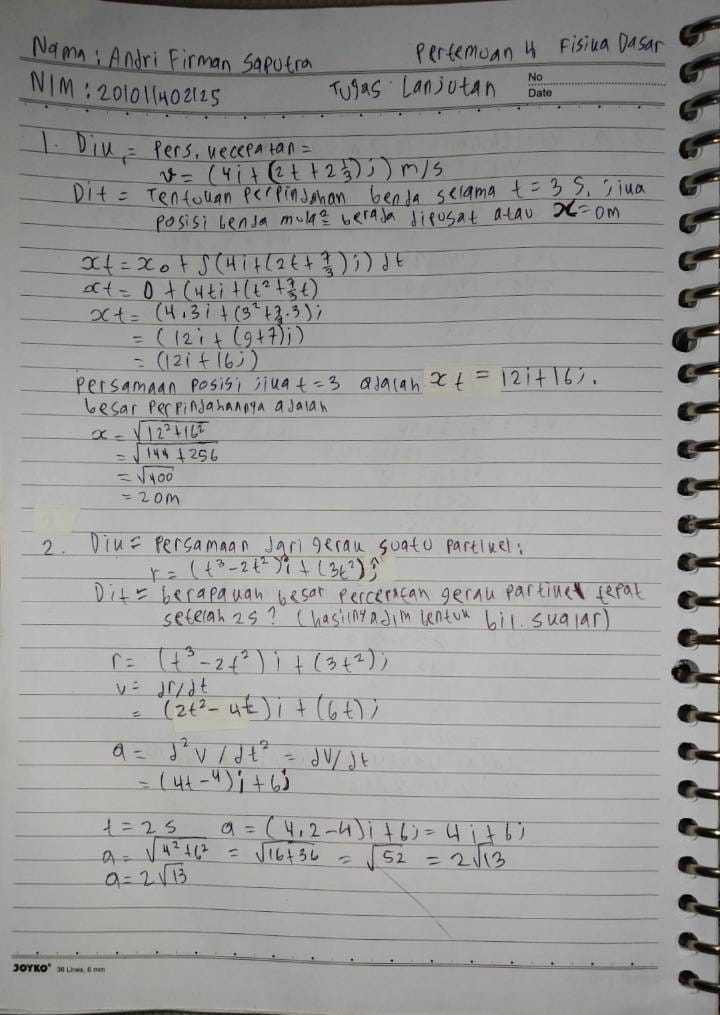 Nama : Andri Firman Saputra
Pertemuan 4 Fisika Dasar
NIM : 201011402125
Tugas Lanjutan
No
Date
1. Dik = Pers. kecepatan =
v = (4i + (2t + 2 1/3) j) m/s
Dit = Tentukan perpindahan benda selama t = 3 s, jika
posisi benda mula² berada dipusat atau x = 0m
xt = x0 + ∫(4i + (2t + 7/3) j) dt
xt = 0 + (4ti + (t² + 7/3 t)
xt = (4.3i + (3² + 7/3 . 3) j
= (12i + (9+7)j)
= (12i + 16j)
Persamaan posisi jika t = 3 adalah xt = 12i + 16j.
besar perpindahannya adalah
x = √12² + 16²
= √144 + 256
= √400
= 20m
2. Dik = Persamaan dari gerak suatu partikel :
r = (t³ - 2t²)i + (3t²)j
Dit = berapakah besar percepatan gerak partikel tepat
setelah 2s ? (hasilnya dlm bentuk bil. skalar)
r = (t³ - 2t²) i + (3t²) j
v = dr/dt
= (2t² - 4t) i + (6t) j
a = d²v/dt² = dv/dt
= (4t - 4) i + 6j
t = 2 s a = (4.2 - 4) i + 6j = 4i + 6j
a = √4² + 6² = √16 + 36 = √52 = 2√13
a = 2√13
JOYKO® 36 Lines, 6 mm